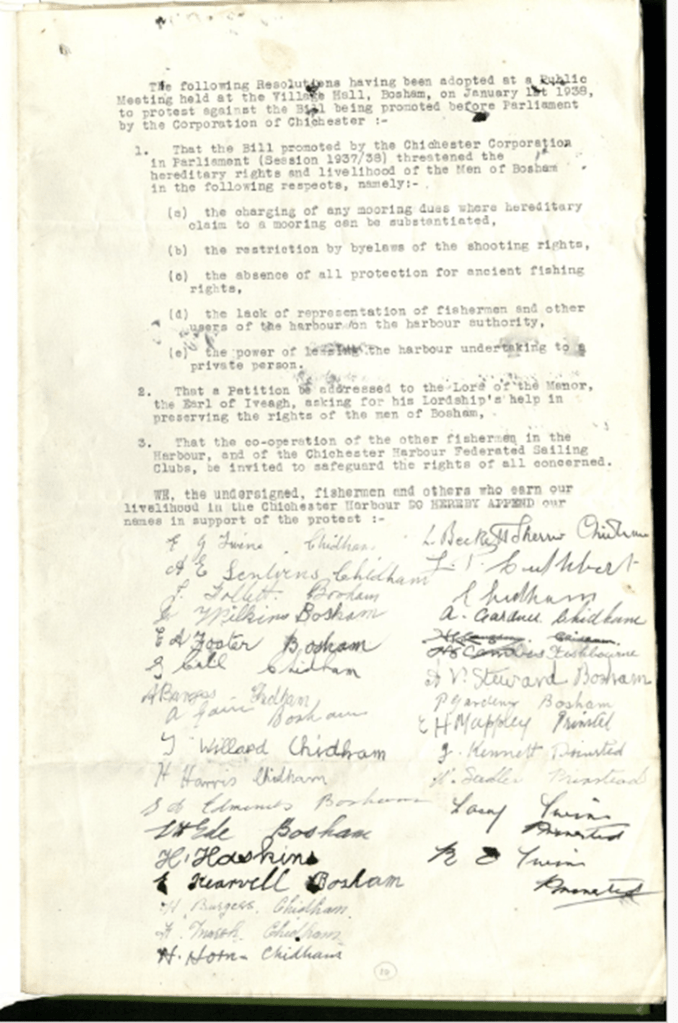 The following Resolutions having been adopted at a Public
Meeting held at the Village Hall, Bosham, on January 1st 1938,
to protest against the Bill being promoted before Parliament
by the Corporation of Chichester :-
1. That the Bill promoted by the Chichester Corporation
in Parliament (Session 1937/38) threatened the
hereditary rights and livelihood of the Men of Bosham
in the following respects, namely:-
(a) the charging of any mooring dues where hereditary
claim to a mooring can be substantiated,
(b) the restriction by byelaws of the shooting rights,
(c) the absence of all protection for ancient fishing
rights,
(d) the lack of representation of fishermen and other
users of the harbour on the harbour authority,
(e) the power of leasing the harbour undertaking to a
private person.
2. That a Petition be addressed to the Lord of the Manor,
the Earl of Iveagh, asking for his Lordship's help in
preserving the rights of the men of Bosham,
3. That the co-operation of the other fishermen in the
Harbour, and of the Chichester Harbour Federated Sailing
Clubs, be invited to safeguard the rights of all concerned.
WE, the undersigned, fishermen and others who earn our
livelihood in the Chichester Harbour DO HEREBY APPEND our
names in support of the protest :-
Chidham
A E Chidham
Follett Bosham
Wilkins Bosham
E A Foster Bosham
Call Chidham
A Burges
Bosham
Willard Chidham
H Harris Chidham
Bosham
Ede Bosham
H. Haskins
Kearvell Bosham
H. Burgess. Chidham
Chidham
H. Horn Chidham
Chidham
Cuthbert
Chidham
A. Gardner Chidham
Fishbourne
V. Steward Bosham
Bosham
E H Mappley Prinsted
J. Kennett Prinsted
Twine
Prinsted
R E Twine
Prinsted